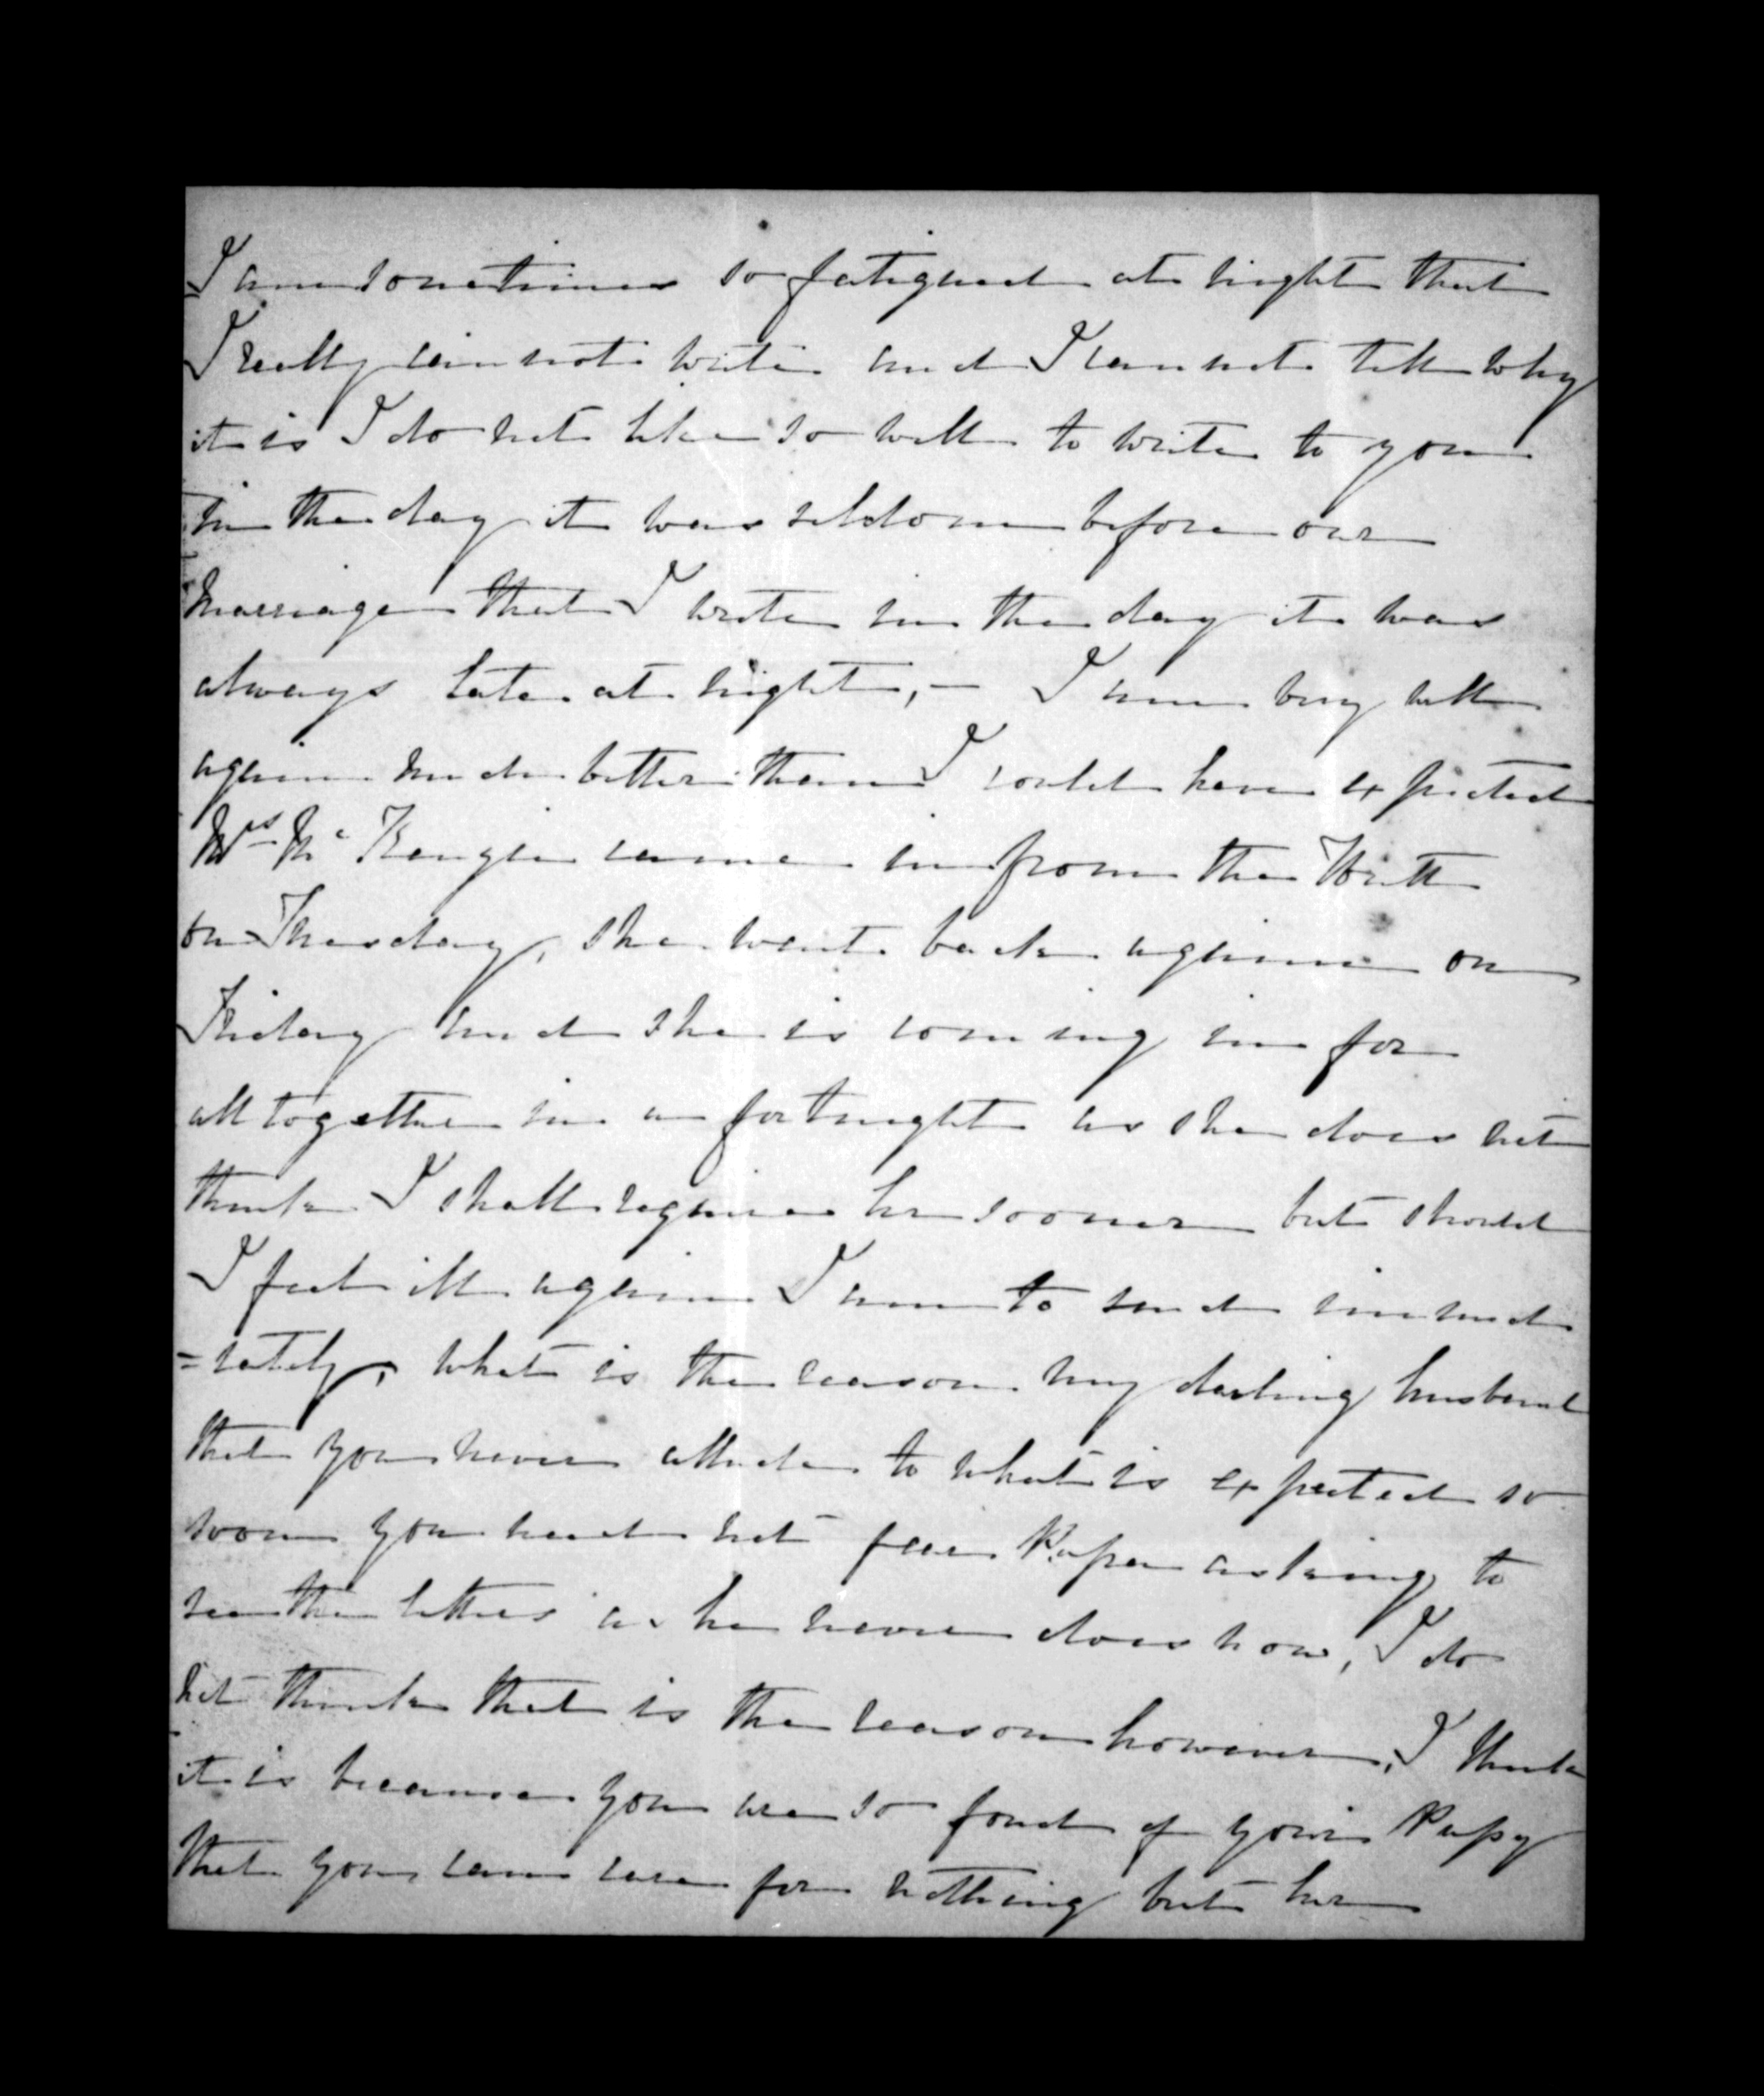 I am sometimes so fatigued at night that
I really can not write and I can not tell why
it is I do not like so well to write to you
in the day it was seldom before our
marriage that I wrote in the day it was
always late at night, — I am very well
again much better than I could have expected
Mrs Mc Kenzie came in from the Hutt
on Thursday, she went back again on
Friday and she is coming in for
all together in a fortnight as she does not
think I shall require her sooner but should
I feel ill again I am to send immed
=iately, what is the reason my darling husband
that you never allude to what is expected so
soon you need not fear Papa asking to
see the letters as he never does now, I do
not think that is the reason however, I think
it is because you are so fond of your Pussy
that you can care for nothing but her